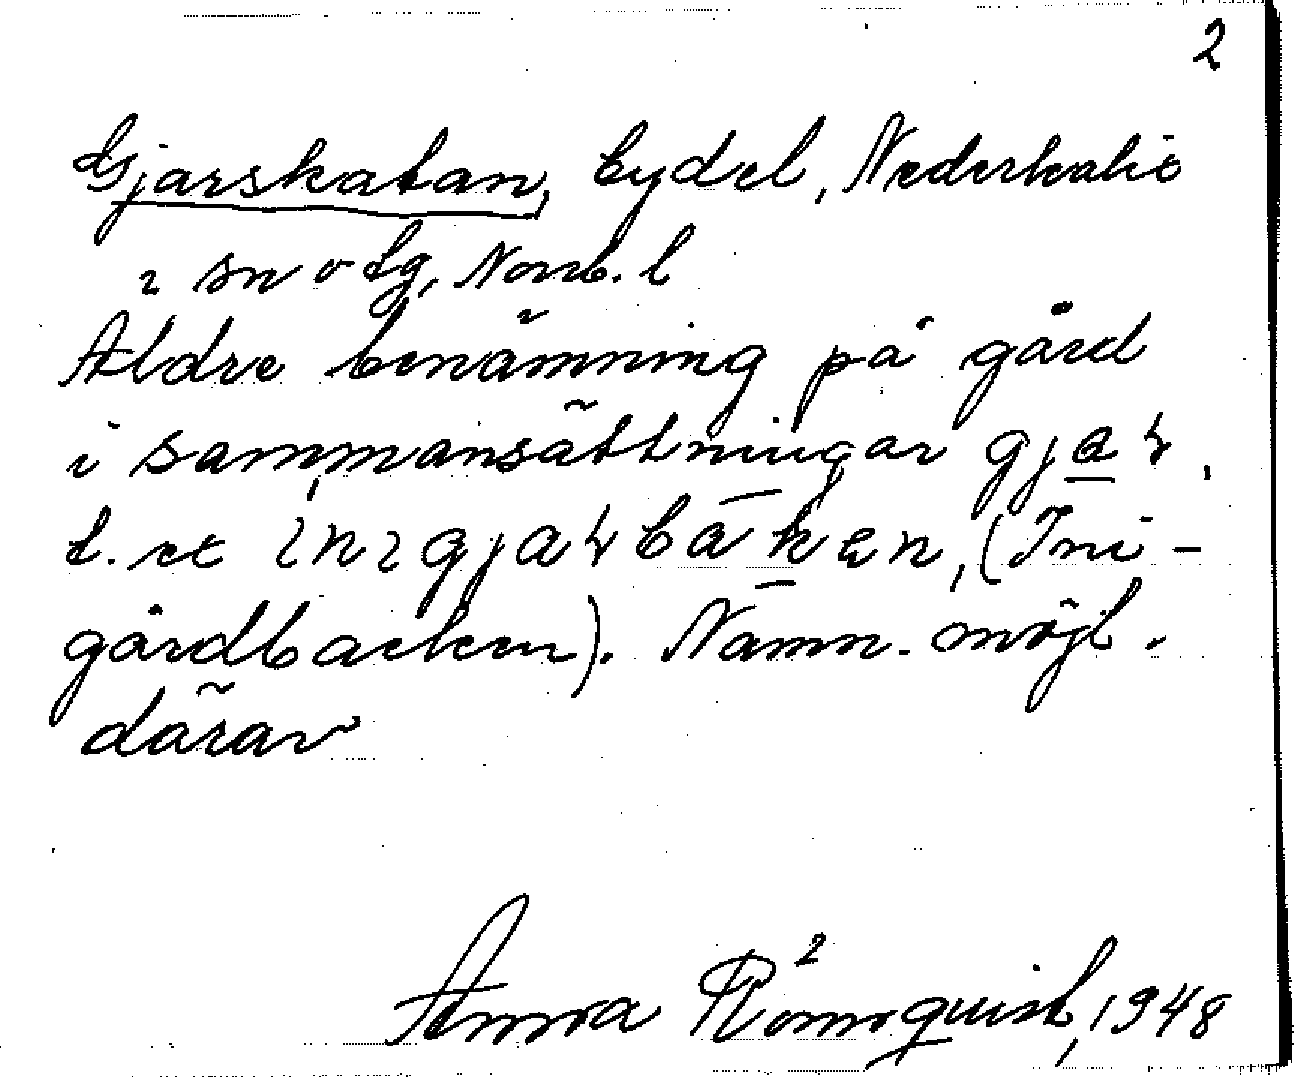 2
Gjarskatan, bydel, Nederkalix
i sn o tg, Norrb. l
Äldre benämning på gård
i sammansättningar gjaɽ,
t. ex ìnigjaɽbākan, (Ini-
gårdbacken). Namn. möjl.
därav
Anna Rönnquist, 1948